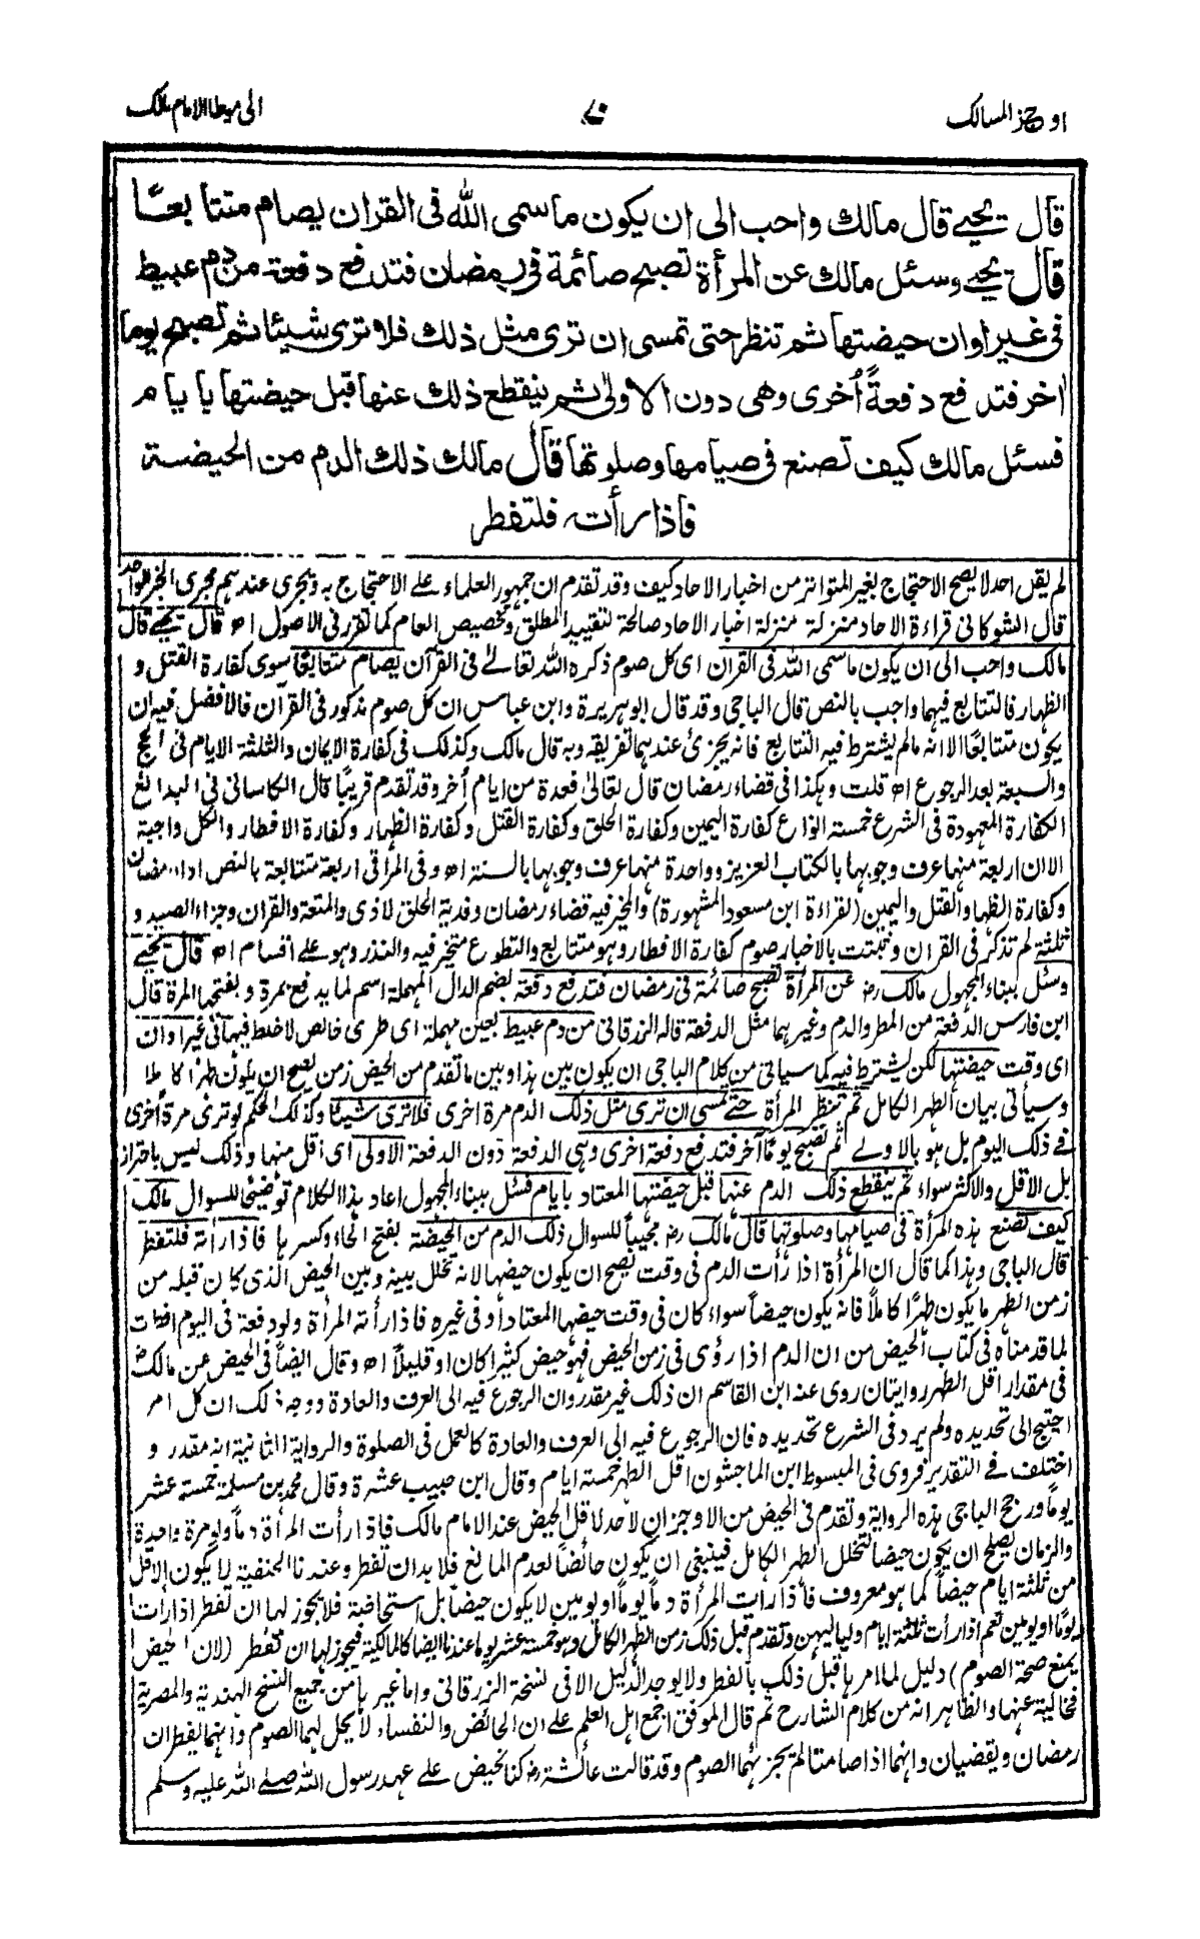 اوجز المسالك
٧٠
الى موطا الامام مالك
قال يحيى قال مالك واحب الى ان يكون ما سمى الله فى القران يصام متتابعًا
قال يحيى وسئل مالك عن المرأة تصبح صائمة فى رمضان فتدفع دفعة من دم عبيط
فى غير اوان حيضتها ثم تنظر حتى تمسى ان ترى مثل ذلك فلا ترى شيئا ثم تصبح يوما
اخر فتدفع دفعةً اُخرى وهى دون الاولىٰ ثم ينقطع ذلك عنها قبل حيضتها بايام
فسئل مالك كيف تصنع فى صيامها وصلوتها قال مالك ذلك الدم من الحيضة
فاذا رأته فلتفطر
لم يقل احد لا يصح الاحتجاج بغير المتواتر من اخبار الاحاد كيف وقد تقدم ان جمهور العلماء على الاحتجاج به ويجرى عندهم مجرى الخبر الواحد
قال الشوكانى قراءة الاحاد منزلة منزلة اخبار الاحاد صالحة لتقييد المطلق وتخصيص العام كما تقرر فى الاصول اھ قال يحيى قال
مالك واحب الى ان يكون ما سمى الله فى القران اى كل صوم ذكره الله تعالىٰ فى القرآن يصام متتابعًا سوى كفارة القتل و
الظهار فالتتابع فيهما واجب بالنص قال الباجى وقد قال ابو هريرة وابن عباس ان كل صوم مذكور فى القرآن فالافضل فيه ان
يكون متتابعًا الا انه مالم يشترط فيه التتابع فانه يجزئ عندهما تفريقه وبه قال مالك وكذلك فى كفارة الايمان والثلثة الايام فى الحج
والسبعة بعد الرجوع اھ قلت وهكذا فى قضاء رمضان قال تعالىٰ فعدة من ايام اُخر وقد تقدم قريبًا قال الكاسانى فى البدائع
الكفارة المعهودة فى الشرع خمسة انواع كفارة اليمين وكفارة الحلق وكفارة القتل وكفارة الظهار وكفارة الافطار والكل واجبة
الا ان اربعة منها عرف وجوبها بالكتاب العزيز وواحدة منها عرف وجوبها بالسنة اھ وفى المراقى اربعة متتابعة بالنص اداء رمضان
وكفارة الظهار والقتل واليمين (لقراءة ابن مسعود المشهورة) والمخير فيه قضاء رمضان وفدية الحلق لاذى والمتعة والقران وجزاء الصيد و
ثلثة لم تذكر فى القران وثبتت بالاخبار صوم كفارة الافطار وهو متتابع والتطوع متخير فيه والنذر وهو على اقسام اھ قال يحيى
وسئل ببناء المجهول مالك رض عن المرأة تصبح صائمة فى رمضان فتدفع دفعة بضم الدال المهملة اسم لما يدفع بمرة وبفتحها المرة قال
ابن فارس الدفعة من المطر والدم وغيرهما مثل الدفقة قاله الزرقانى من دم عبيط بعين مهملة اى طرى خالص لا خلط فيها فى غير اوان
اى وقت حيضتها لكن يشترط فيه كما سياتى من كلام الباجى ان يكون بين هذا وبين ما تقدم من الحيض زمن يصح ان يكون طهرًا كاملا
وسيأتى بيان الطهر الكامل ثم تنظر المرأة حتى تمسى ان ترى مثل ذلك الدم مرة اخرى فلا ترى شيئا وكذلك الحكم لو ترى مرة اُخرى
فى ذلك اليوم بل هو بالاولى ثم تصبح يومًا آخر فتدفع دفعة اخرى وهى الدفعة دون الدفعة الاولى اى اقل منها وذلك ليس باحتراز
بل الاقل والاكثر سواء ثم ينقطع ذلك الدم عنها قبل حيضتها المعتاد بايام فسئل ببناء المجهول اعاد بهذا الكلام توضيحا للسوال مالك
كيف تصنع هذه المرأة فى صيامها وصلوتها قال مالك رض مجيبًا للسوال ذلك الدم من الحيضة بفتح الحاء وكسرها فاذا رأته فلتفطر
قال الباجى وهذا كما قال ان المرأة اذا رأت الدم فى وقت يصح ان يكون حيضها لانه تخلل بينه وبين الحيض الذى كان قبله من
زمن الطهر ما يكون طهرًا كاملًا فانه يكون حيضاً سواء كان فى وقت حيضها المعتاد او فى غيره فاذا رأته المرأة ولو دفعة فى اليوم افطرت
لما قدمناه فى كتاب الحيض من ان الدم اذا رؤى فى زمن الحيض فهو حيض كثيرا كان او قليلاً اھ وقال ايضاً فى الحيض عن مالك رض
فى مقدار اقل الطهر روايتان روى عنه ابن القاسم ان ذلك غير مقدر وان الرجوع فيه الى العرف والعادة ووجه ذلك ان كل امر
احتيج الى تحديده ولم يرد فى الشرع تحديده فان الرجوع فيه الى العرف والعادة كالعمل فى الصلوة والرواية الثانية انه مقدر و
اختلف فى التقدير فروى فى المبسوط ابن الماجشون اقل الطهر خمسة ايام وقال ابن حبيب عشرة وقال محمد بن مسلمة خمسة عشر
يوماً ورجح الباجى هذه الرواية وتقدم فى الحيض من الاوجز ان لا حد لاقل الحيض عند الامام مالك فاذا رأت المرأة دماً ولو مرة واحدة
والزمان يصلح ان يكون حيضا لتخلل الطهر الكامل فينبغى ان يكون حائضاً لعدم المانع فلابد ان تفطر وعندنا الحنفية لا يكون الاقل
من ثلثة ايام حيضاً كما هو معروف فاذا رأت المرأة دماً يوماً او يومين لا يكون حيضاً بل استحاضة فلا يجوز لها ان تفطر اذا رأت
يومًا او يومين نعم اذا رأت ثلثة ايام ولياليهن وتقدم قبل ذلك زمن الطهر الكامل وهو خمسة عشر يوما عندنا ايضا كالمالكية فيجوز لها ان تفطر (لان الحيض
يمنع صحة الصوم) دليل لما امرها قبل ذلك بالفطر ولا يوجد الدليل الا فى نسخة الزرقانى واما غيرها من جميع النسخ الهندية والمصرية
فخالية عنها والظاهر انه من كلام الشارح ثم قال الموفق اجمع اهل العلم على ان الحائض والنفساء لا يحل لهما الصوم وانهما يفطران
رمضان ويقضيان وانهما اذا صامتا لم يجزئهما الصوم وقد قالت عائشة رض كنا نحيض على عهد رسول الله صلى الله عليه وسلم